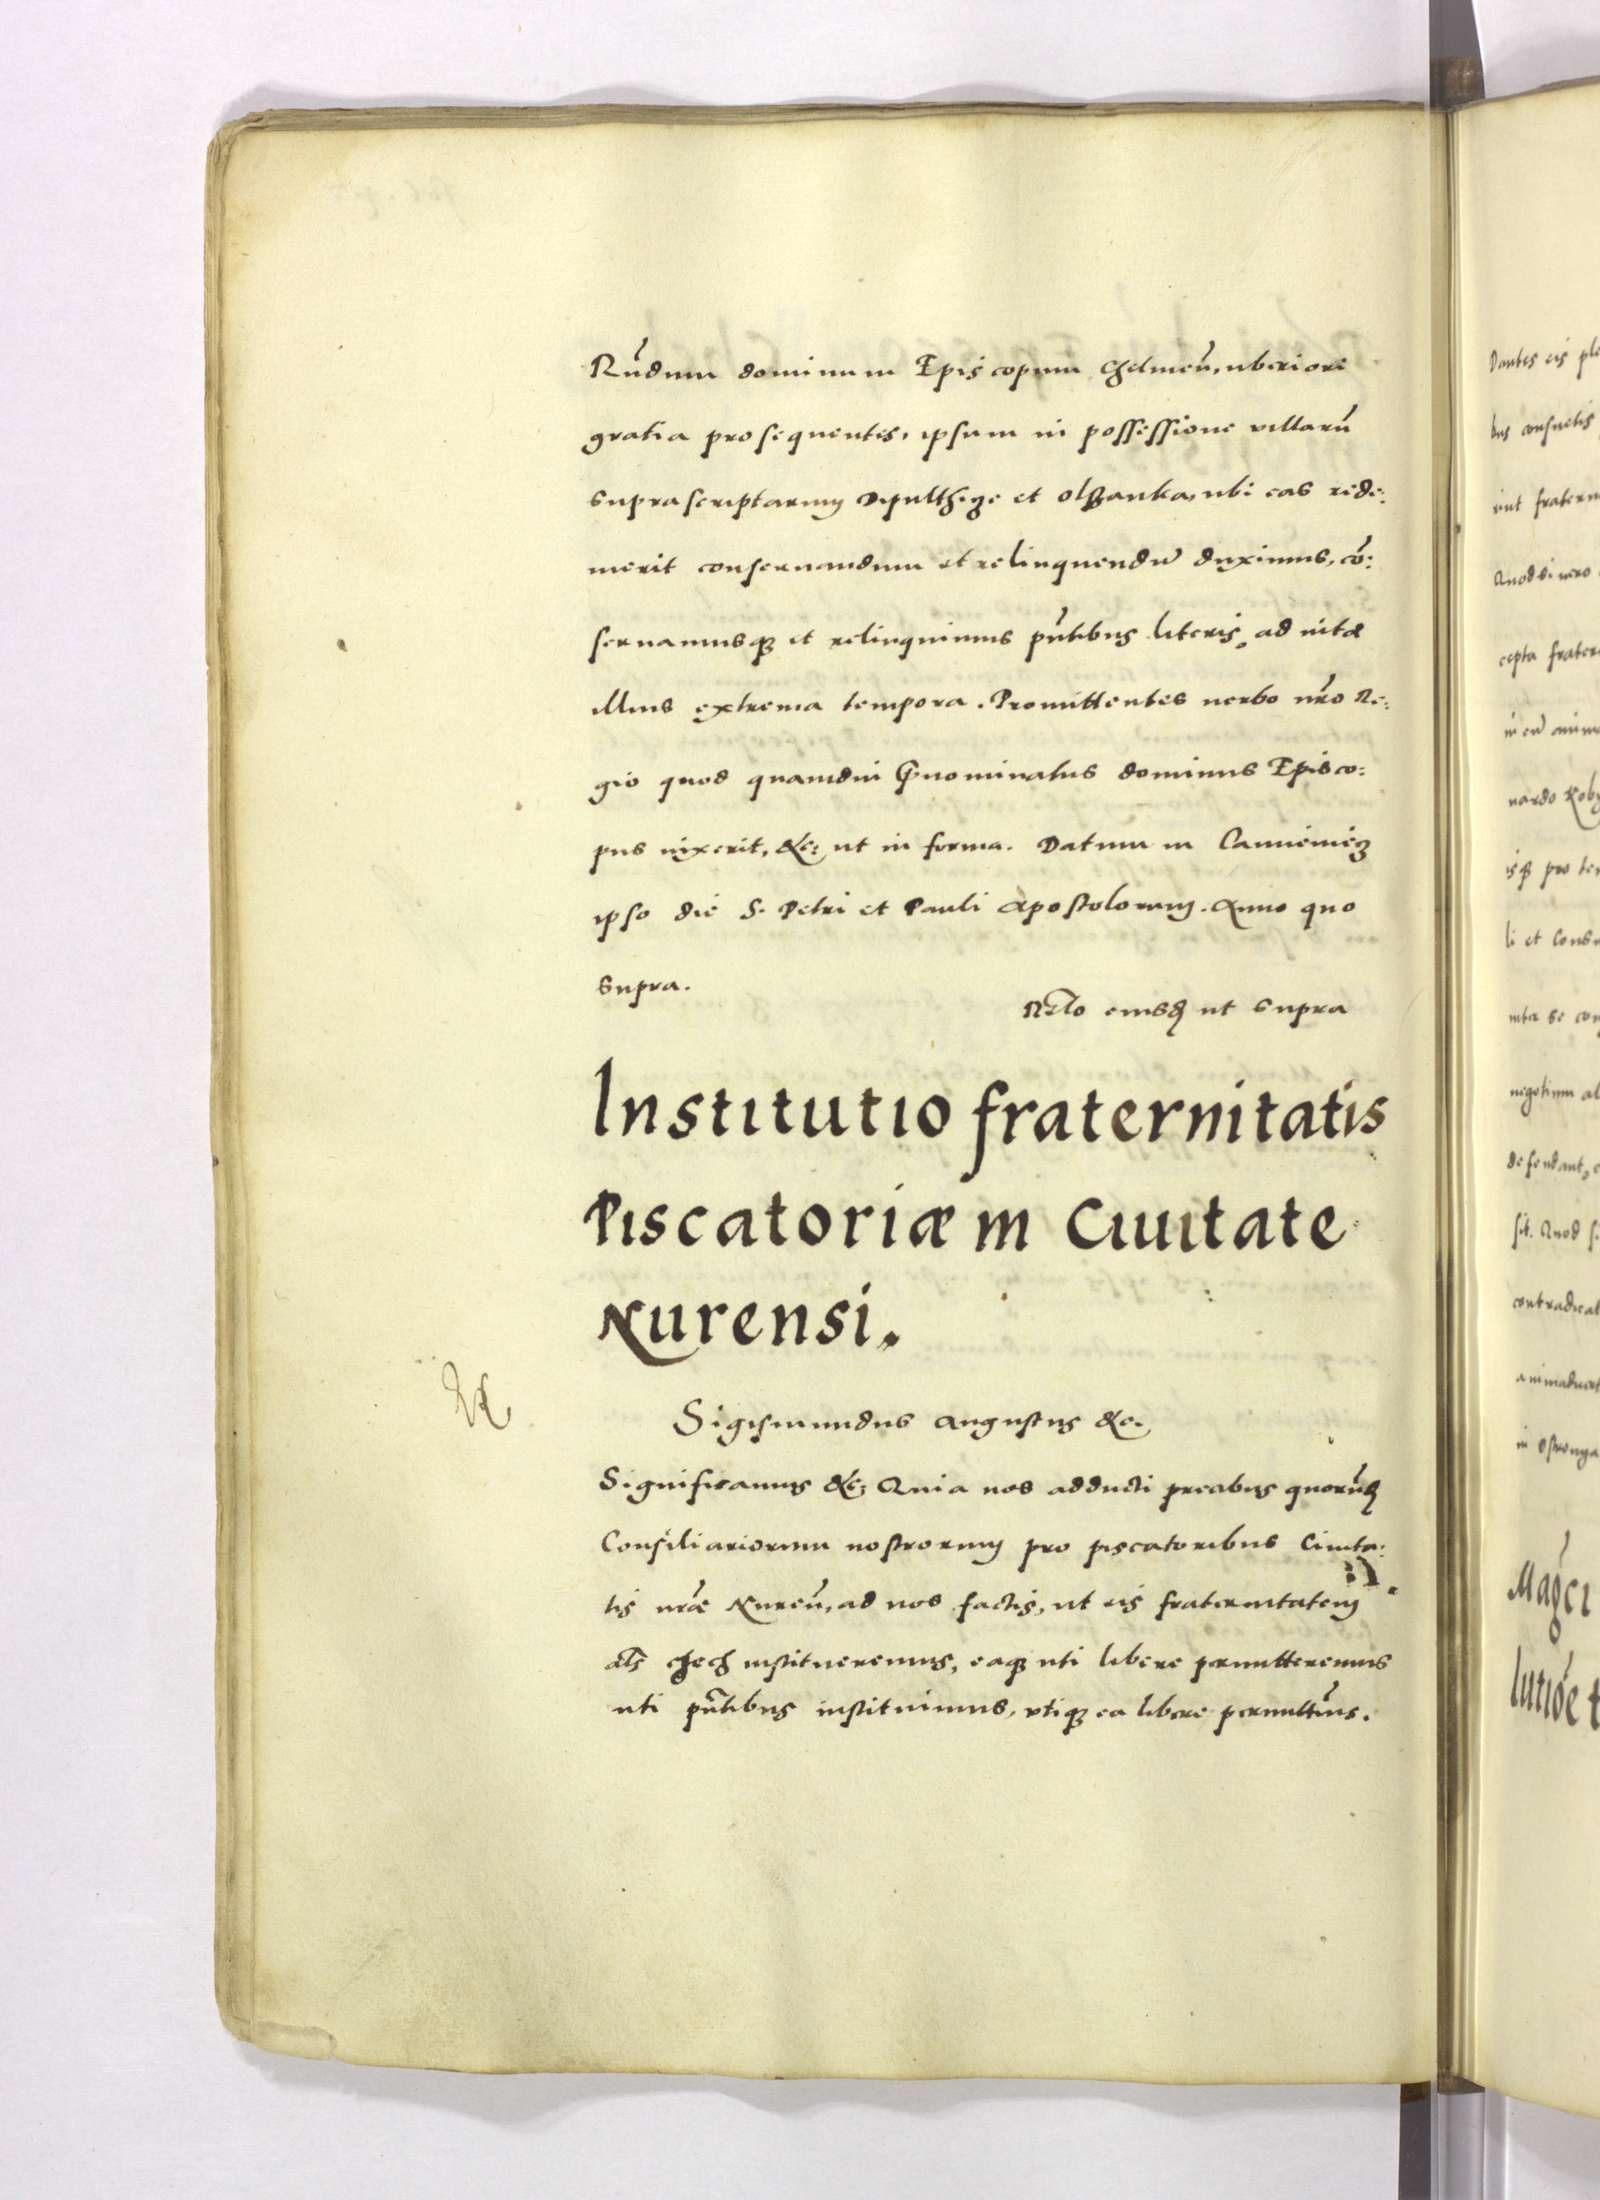 Rñdum dominum Episcopum Chelmeñ, uberiore
gratia prosequentes, ipsum in possessione villarũ
suprascriptarum et Olszanka, ubi eas rede:
merit conseruandum et relinquendũ duximus, cõ:
seruamusq; et relinquimus pñtibus literis, ad uitæ
illius extrema tempora. Promittentes uerbo nr̃o Re:
gio quod quamdiu prænominatus dominus Episco:
pus uixerit, &c; ut in forma. Datum in
ipso die S. Petri et Pauli Apostolorum. Anno quo
supra.
Rel̃o eiusdem ut supra
Institutio fraternitatis
Piscatoriæ in Ciuitate
Nurensi.
Sigismundus Augustus &c.
Significamus &c; Quia nos adducti precibus quorũd
Consiliariorum nostrorum pro piscatoribus Ciuita:
tis nr̃æ Nureñ, ad nos factis, ut eis fraternitatem
al̃s Czech institueremus, eaq; uti libere permitteremus
uti pñtibus instituimus, utiq; ea libere permittim̃us.
Dantes eis ple
bus consuetis
rint fratern
Quod si uero
cepta frater
in eũ anim
nardo Koby
isq; pro te
li et Cons
inter se con
negotium al
defendant, e
sit. Quod si
contradicat
animaduert
in Ostrouga
Mag̃ci
lutiõe t